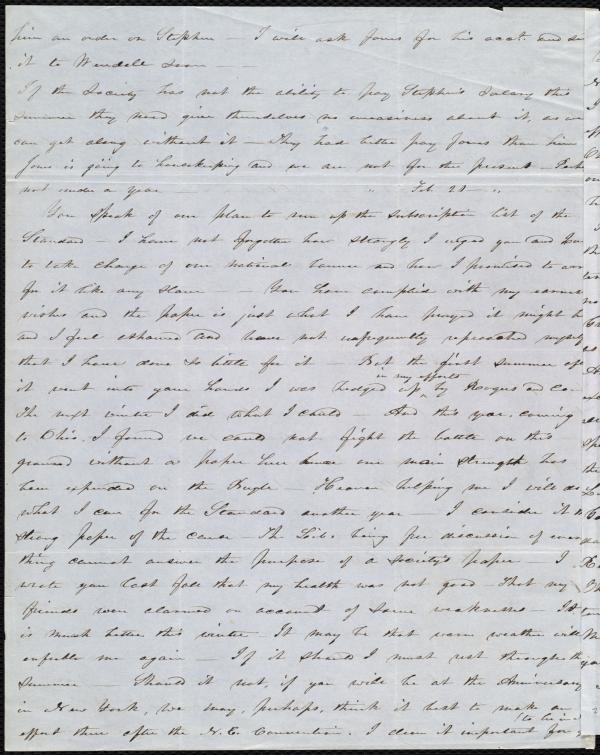 him an order on Stephen — I will ask Jones for his acct. and send
it to Wendell soon — —
If the Society has not the ability to pay Stephen's salary this
summer they need give themselves no uneasiness about it, as we
can get along without it — They had better pay Jones than him
Jones is going to housekeeping and we are not for the present —
not under a year — " Feb. 21 — "
You speak of our plan to run up the subscription list of the
Standard — I have not forgotten how strongly I urged you and
to take charge of our national banner and how I promised to
for it like any slave — — You have complied with my earnest
wishes and the paper is just what I have prayed it might be
and I feel ashamed and have not unfrequently reproached myself
that I have done so little for it — But the first summer after
it went into your hands I was hedged up in my efforts by Rogers and
The next winter I did what I could — And this year, coming
to Ohio, I found we could not fight the battle on this
ground without a paper here hence our main strength has
been expended on the Bugle — Heaven helping me I will do
what I can for the Standard another year — I consider it the
strong paper of the cause — The Lib. being free discussion of every
thing cannot answer the purpose of a society's paper — I
wrote you last fall that my health was not good — That my
friends were alarmed on account of some weaknesses — It
is much better this winter — It may be that warm weather will
enfeeble me again — If it should I must rest through the
summer — Should it not, if you will be at the Anniversary
in New York, we may, perhaps, think it best to make an
effort there after the N.E. Convention. I deem it important for